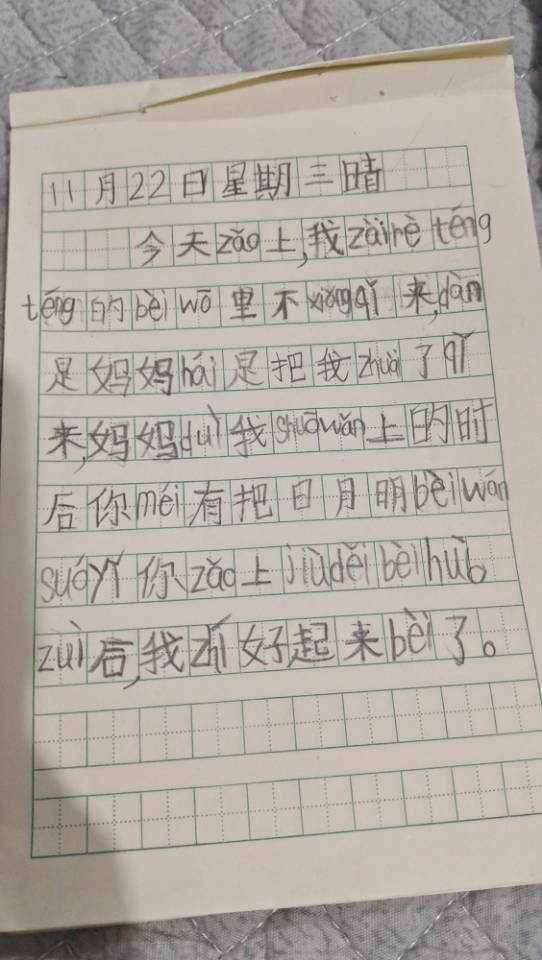 11月22日星期三晴
今天zǎo上,我zàirè téng
téng的bèi wō里不xiǎngqǐ来,dàn
是妈妈hái是把我zhuài了qǐ
来,妈妈duì我shuōwǎn上的时
后你méi有把日月明bèiwán
suóyǐ你zǎo上jiùděi bèi huì。
zuì后,我zhǐ好起来bèi了。